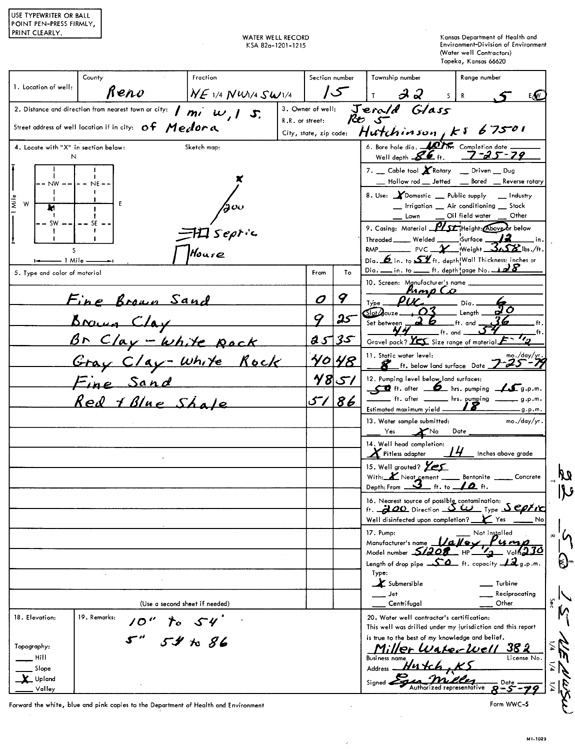 USE TYPEWRITER OR BALL
POINT PEN-PRESS FIRMLY,
PRINT CLEARLY.
WATER WELL RECORD
KSA 82a-1201-1215
Kansas Department of Health and
Environment-Division of Environment
(Water well Contractors)
Topeka, Kansas 66620
1. Location of well: County Reno Fraction NE 1/4 NW 1/4 SW 1/4 Section number 15 Township number T 22 S Range number R 5 E W
2. Distance and direction from nearest town or city: 1 mi w, 1 S.
Street address of well location if in city: of Medora
3. Owner of well: Jerald Glass
R.R. or street: Rt 5
City, state, zip code: Hutchinson, KS 67501
4. Locate with "X" in section below:
Sketch map:
N
NW NE
W E
SW SE
S
1 Mile
1 Mile
X
200
Septic
House
5. Type and color of material From To
Fine Brown Sand 0 9
Brown Clay 9 25
Br Clay - White Rock 25 35
Gray Clay - White Rock 40 48
Fine Sand 48 51
Red + Blue Shale 51 86
(Use a second sheet if needed)
6. Bore hole dia. Completion date
Well depth 86 ft. 7-25-79
7. Cable tool X Rotary Driven Dug
Hollow rod Jetted Bored Reverse rotary
8. Use: X Domestic Public supply Industry
Irrigation Air conditioning Stock
Lawn Oil field water Other
9. Casing: Material Plst Height: Above or below
Threaded Welded Surface 12 in.
RMP PVC X Weight 3.58 lbs./ft.
Dia. 6 in. to 54 ft. depth Wall Thickness: inches or
Dia. in. to ft. depth gage No. .128
10. Screen: Manufacturer's name
Pump Co
Type PVC Dia. 6
Slot/gauze .03 Length 20
Set between 26 ft. and 36 ft.
44 ft. and 54 ft.
Gravel pack? Yes Size range of material F-1/2
11. Static water level: mo./day/yr.
8 ft. below land surface Date 7-25-79
12. Pumping level below land surfaces:
50 ft. after 6 hrs. pumping 15 g.p.m.
ft. after hrs. pumping g.p.m.
Estimated maximum yield 18 g.p.m.
13. Water sample submitted: mo./day/yr.
Yes X No Date
14. Well head completion:
X Pitless adapter 14 Inches above grade
15. Well grouted? Yes
With: X Neat cement Bentonite Concrete
Depth: From 3 ft. to 10 ft.
16. Nearest source of possible contamination:
ft. 200 Direction SW Type Septic
Well disinfected upon completion? X Yes No
17. Pump: Not installed
Manufacturer's name Valley Pump
Model number S1208 HP 1/2 Volts 230
Length of drop pipe 50 ft. capacity 12 g.p.m.
Type:
X Submersible Turbine
Jet Reciprocating
Centrifugal Other
18. Elevation:
Topography:
Hill
Slope
X Upland
Valley
19. Remarks: 10" to 54'
5" 54 to 86
20. Water well contractor's certification:
This well was drilled under my jurisdiction and this report
is true to the best of my knowledge and belief.
Miller Water Well 382
Business name License No.
Address Hutch, KS
Signed Miller Date
Authorized representative 8-5-79
Forward the white, blue and pink copies to the Department of Health and Environment
Form WWC-5
22 5 W Sec 15 NE NW SW
1/4 1/4 1/4